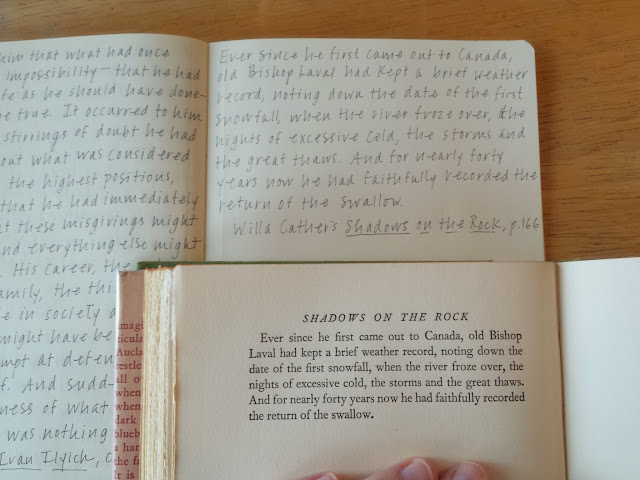 him that what had once
impossibility — that he had
as he should have done —
true. It occurred to him
stirrings of doubt he had
out what was considered
the highest positions,
that he had immediately
these misgivings might
and everything else might
His career, the
family, the
in society
might have
attempt at
And
of what
was nothing
Ivan Ilych,
Ever since he first came out to Canada,
old Bishop Laval had kept a brief weather
record, noting down the date of the first
snowfall, when the river froze over, the
nights of excessive cold, the storms and
the great thaws. And for nearly forty
years now he had faithfully recorded the
return of the swallow.
Willa Cather's Shadows on the Rock, p.166
SHADOWS ON THE ROCK
Ever since he first came out to Canada, old Bishop
Laval had kept a brief weather record, noting down the
date of the first snowfall, when the river froze over, the
nights of excessive cold, the storms and the great thaws.
And for nearly forty years now he had faithfully recorded
the return of the swallow.
all
when
when
dark
a
the
It is